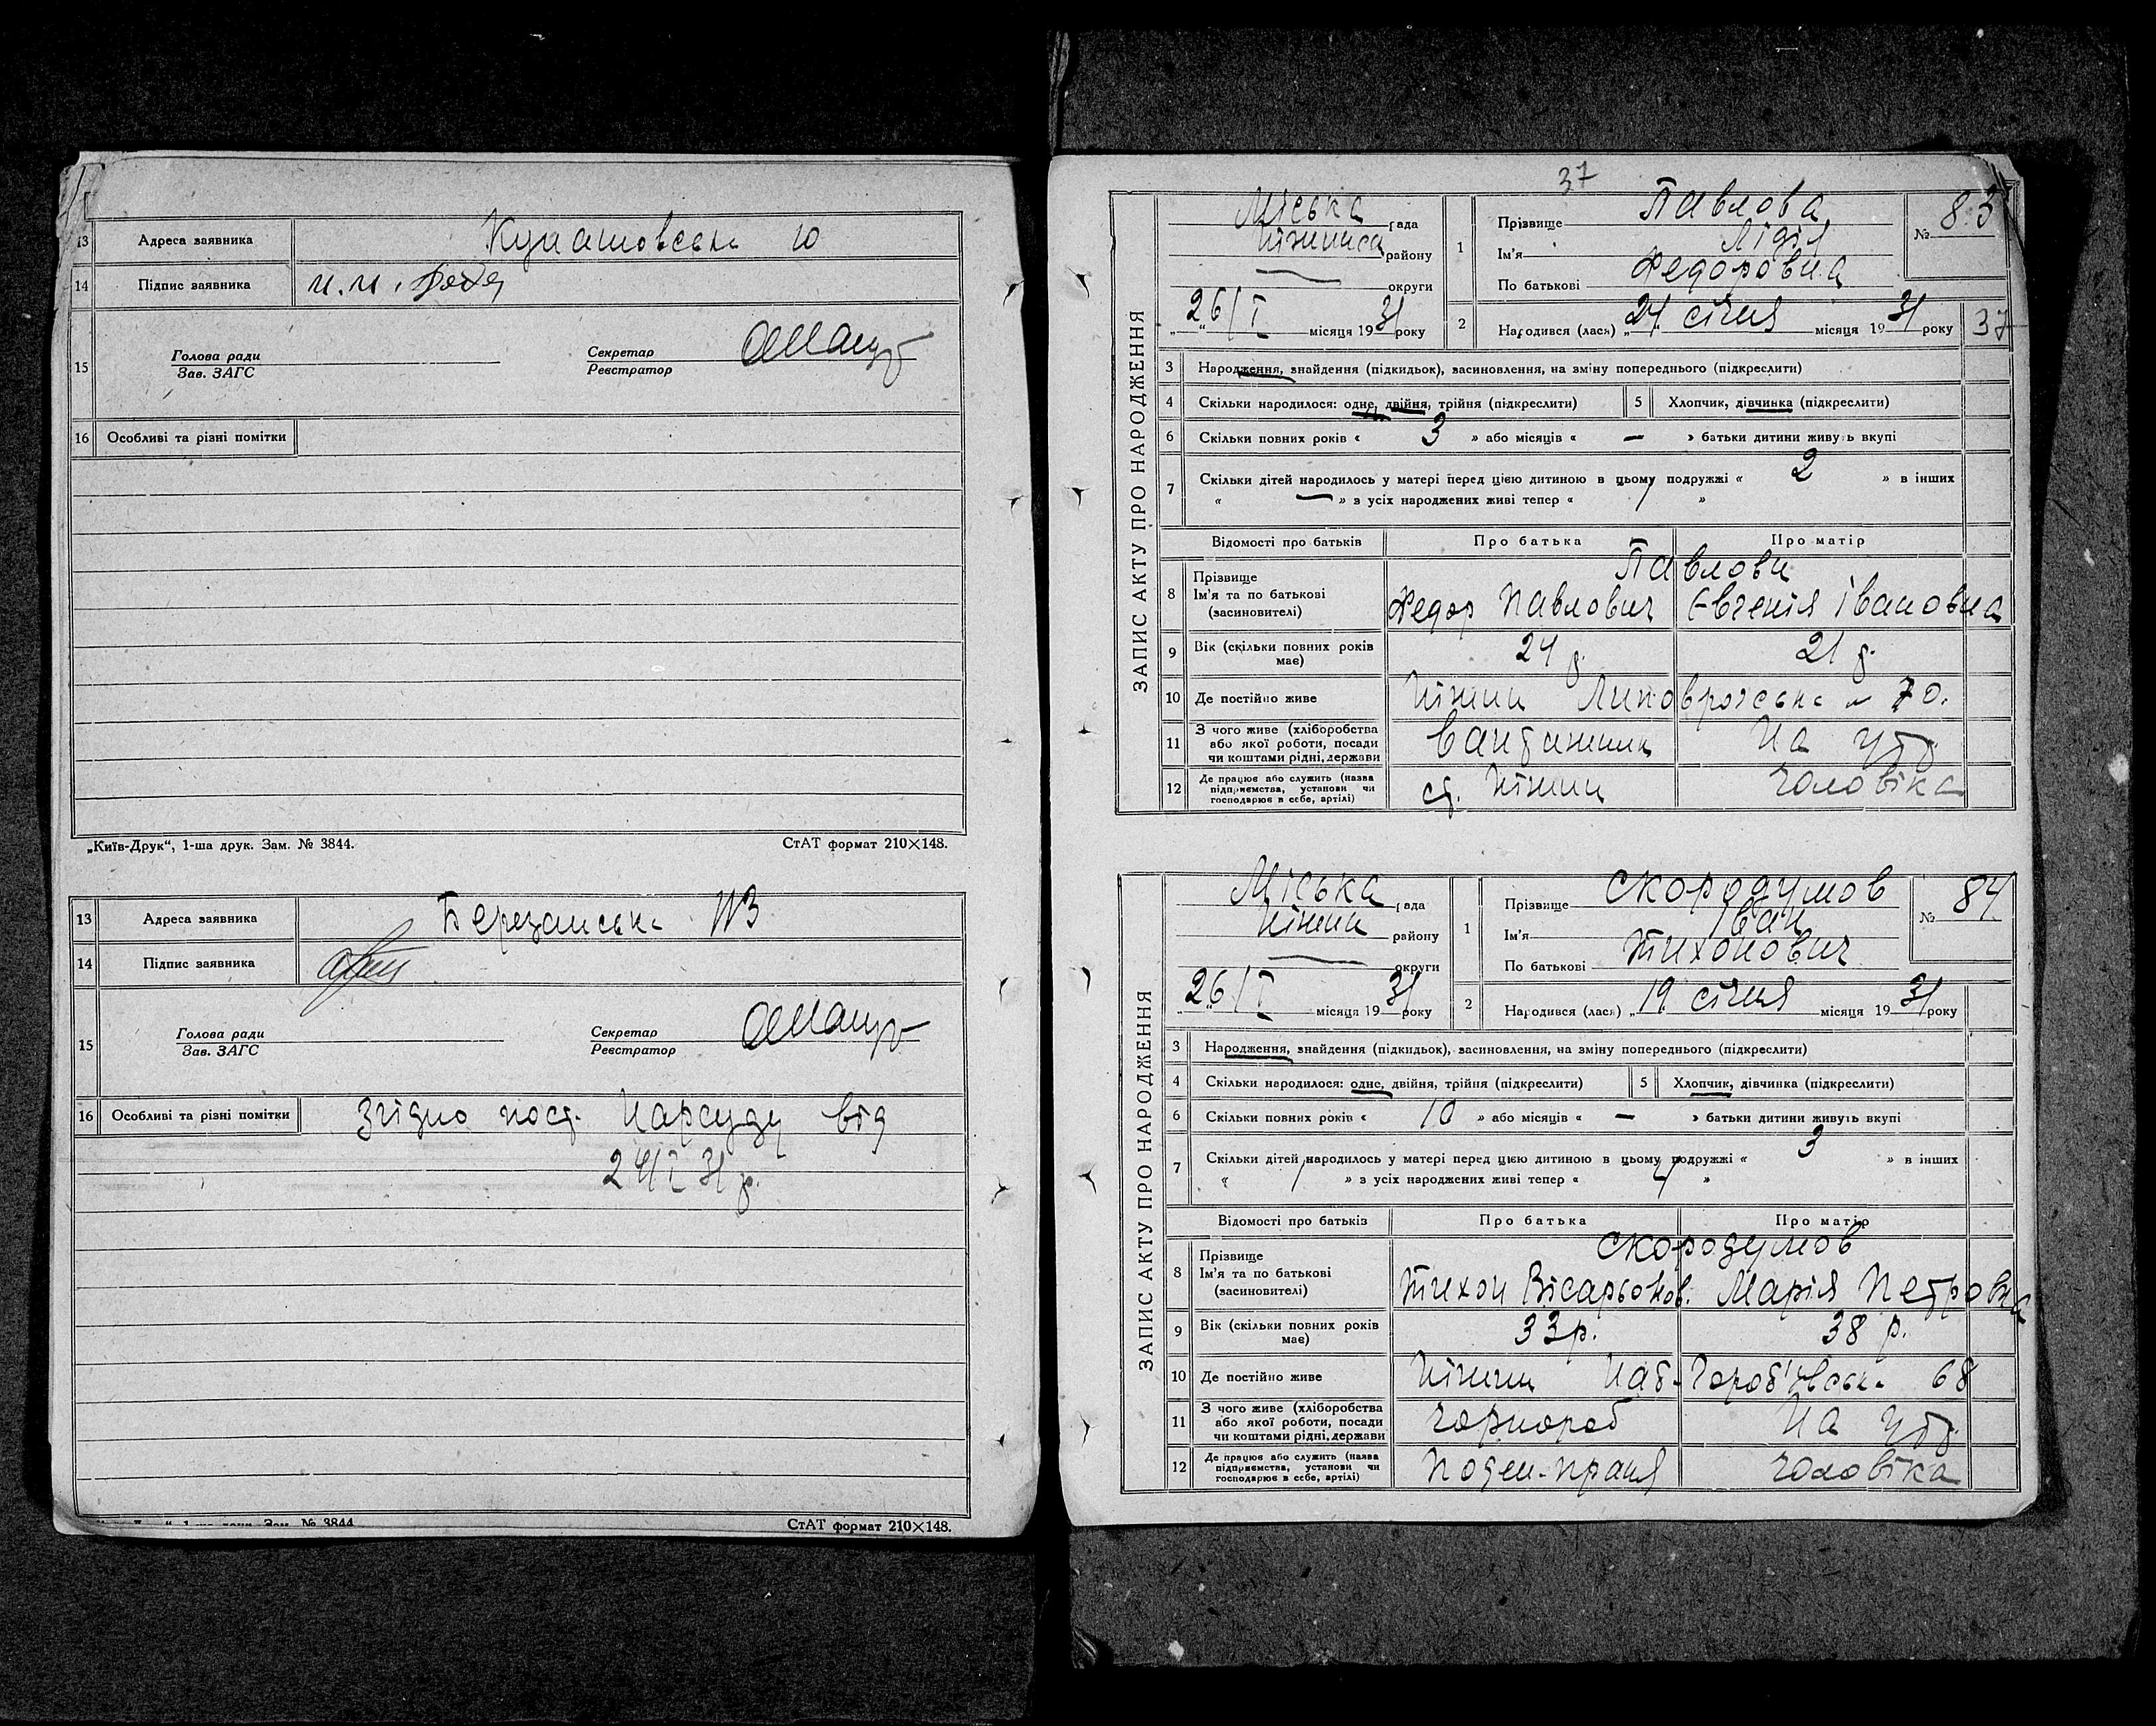 13 Адреса заявника Кунашовськ 10
14 Підпис заявника
15 Голова ради
Зав. ЗАГС
Секретар
Реєстратор
16 Особливі та різні помітки
„Київ-Друк“, 1-ша друк. Зам. № 3844. СтАТ формат 210×148.
13 Адреса заявника Березанськ №3
14 Підпис заявника
15 Голова ради
Зав. ЗАГС
Секретар
Реєстратор
16 Особливі та різні помітки Згідно пост. Нарсуду від
24/I 31 р.
Зам. № 3844 СтАТ формат 210×148.
37
ЗАПИС АКТУ ПРО НАРОДЖЕННЯ
Міська рада
району
округи
„26/I“ місяця 1931 року
1 Прізвище Павлова
Ім'я Лідія
По батькові Федоровна
№ 83
2 Народився (лася) „24“ січня місяця 1931 року 37
3 Народження, знайдення (підкидьок), засиновлення, на зміну попереднього (підкреслити)
4 Скільки народилося: одне, двійня, трійня (підкреслити) 5 Хлопчик, дівчинка (підкреслити)
6 Скільки повних років « 3 » або місяців « — » батьки дитини живуть вкупі
7 Скільки дітей народилось у матері перед цією дитиною в цьому подружжі « 2 » в інших
« — » з усіх народжених живі тепер « 1 »
Відомості про батьків Про батька Про матір
8 Прізвище Павлови
Ім'я та по батькові Федор Павлович Євгенія Івановна
(засиновителі)
9 Вік (скільки повних років має) 24 р. 21 р.
10 Де постійно живе Ніжин 70.
11 З чого живе (хліборобства На утр.
або якої роботи, посади
чи коштами рідні, держави
12 Де працює або служить (назва ст. Ніжин чоловіка
підприємства, установи чи
господарює в себе, артілі)
ЗАПИС АКТУ ПРО НАРОДЖЕННЯ
Міська рада
Ніжин району
округи
„26/I“ місяця 1931 року
1 Прізвище Скородумов
Ім'я Іван
По батькові Тихонович
№ 84
2 Народився (лася) „19“ січня місяця 1931 року
3 Народження, знайдення (підкидьок), засиновлення, на зміну попереднього (підкреслити)
4 Скільки народилося: одне, двійня, трійня (підкреслити) 5 Хлопчик, дівчинка (підкреслити)
6 Скільки повних років « 10 » або місяців « — » батьки дитини живуть вкупі
7 Скільки дітей народилось у матері перед цією дитиною в цьому подружжі « 3 » в інших
« 1 » з усіх народжених живі тепер « 4 »
Відомості про батьків Про батька Про матір
8 Прізвище Скородумов
Ім'я та по батькові Тихон Вісарьонов. Марія Петровна
(засиновителі)
9 Вік (скільки повних років має) 33 р. 38 р.
10 Де постійно живе Ніжин Наб-Гороб'ївськ 68
11 З чого живе (хліборобства чорнороб На утр.
або якої роботи, посади
чи коштами рідні, держави
12 Де працює або служить (назва Поден-праця чоловіка
підприємства, установи чи
господарює в себе, артілі)